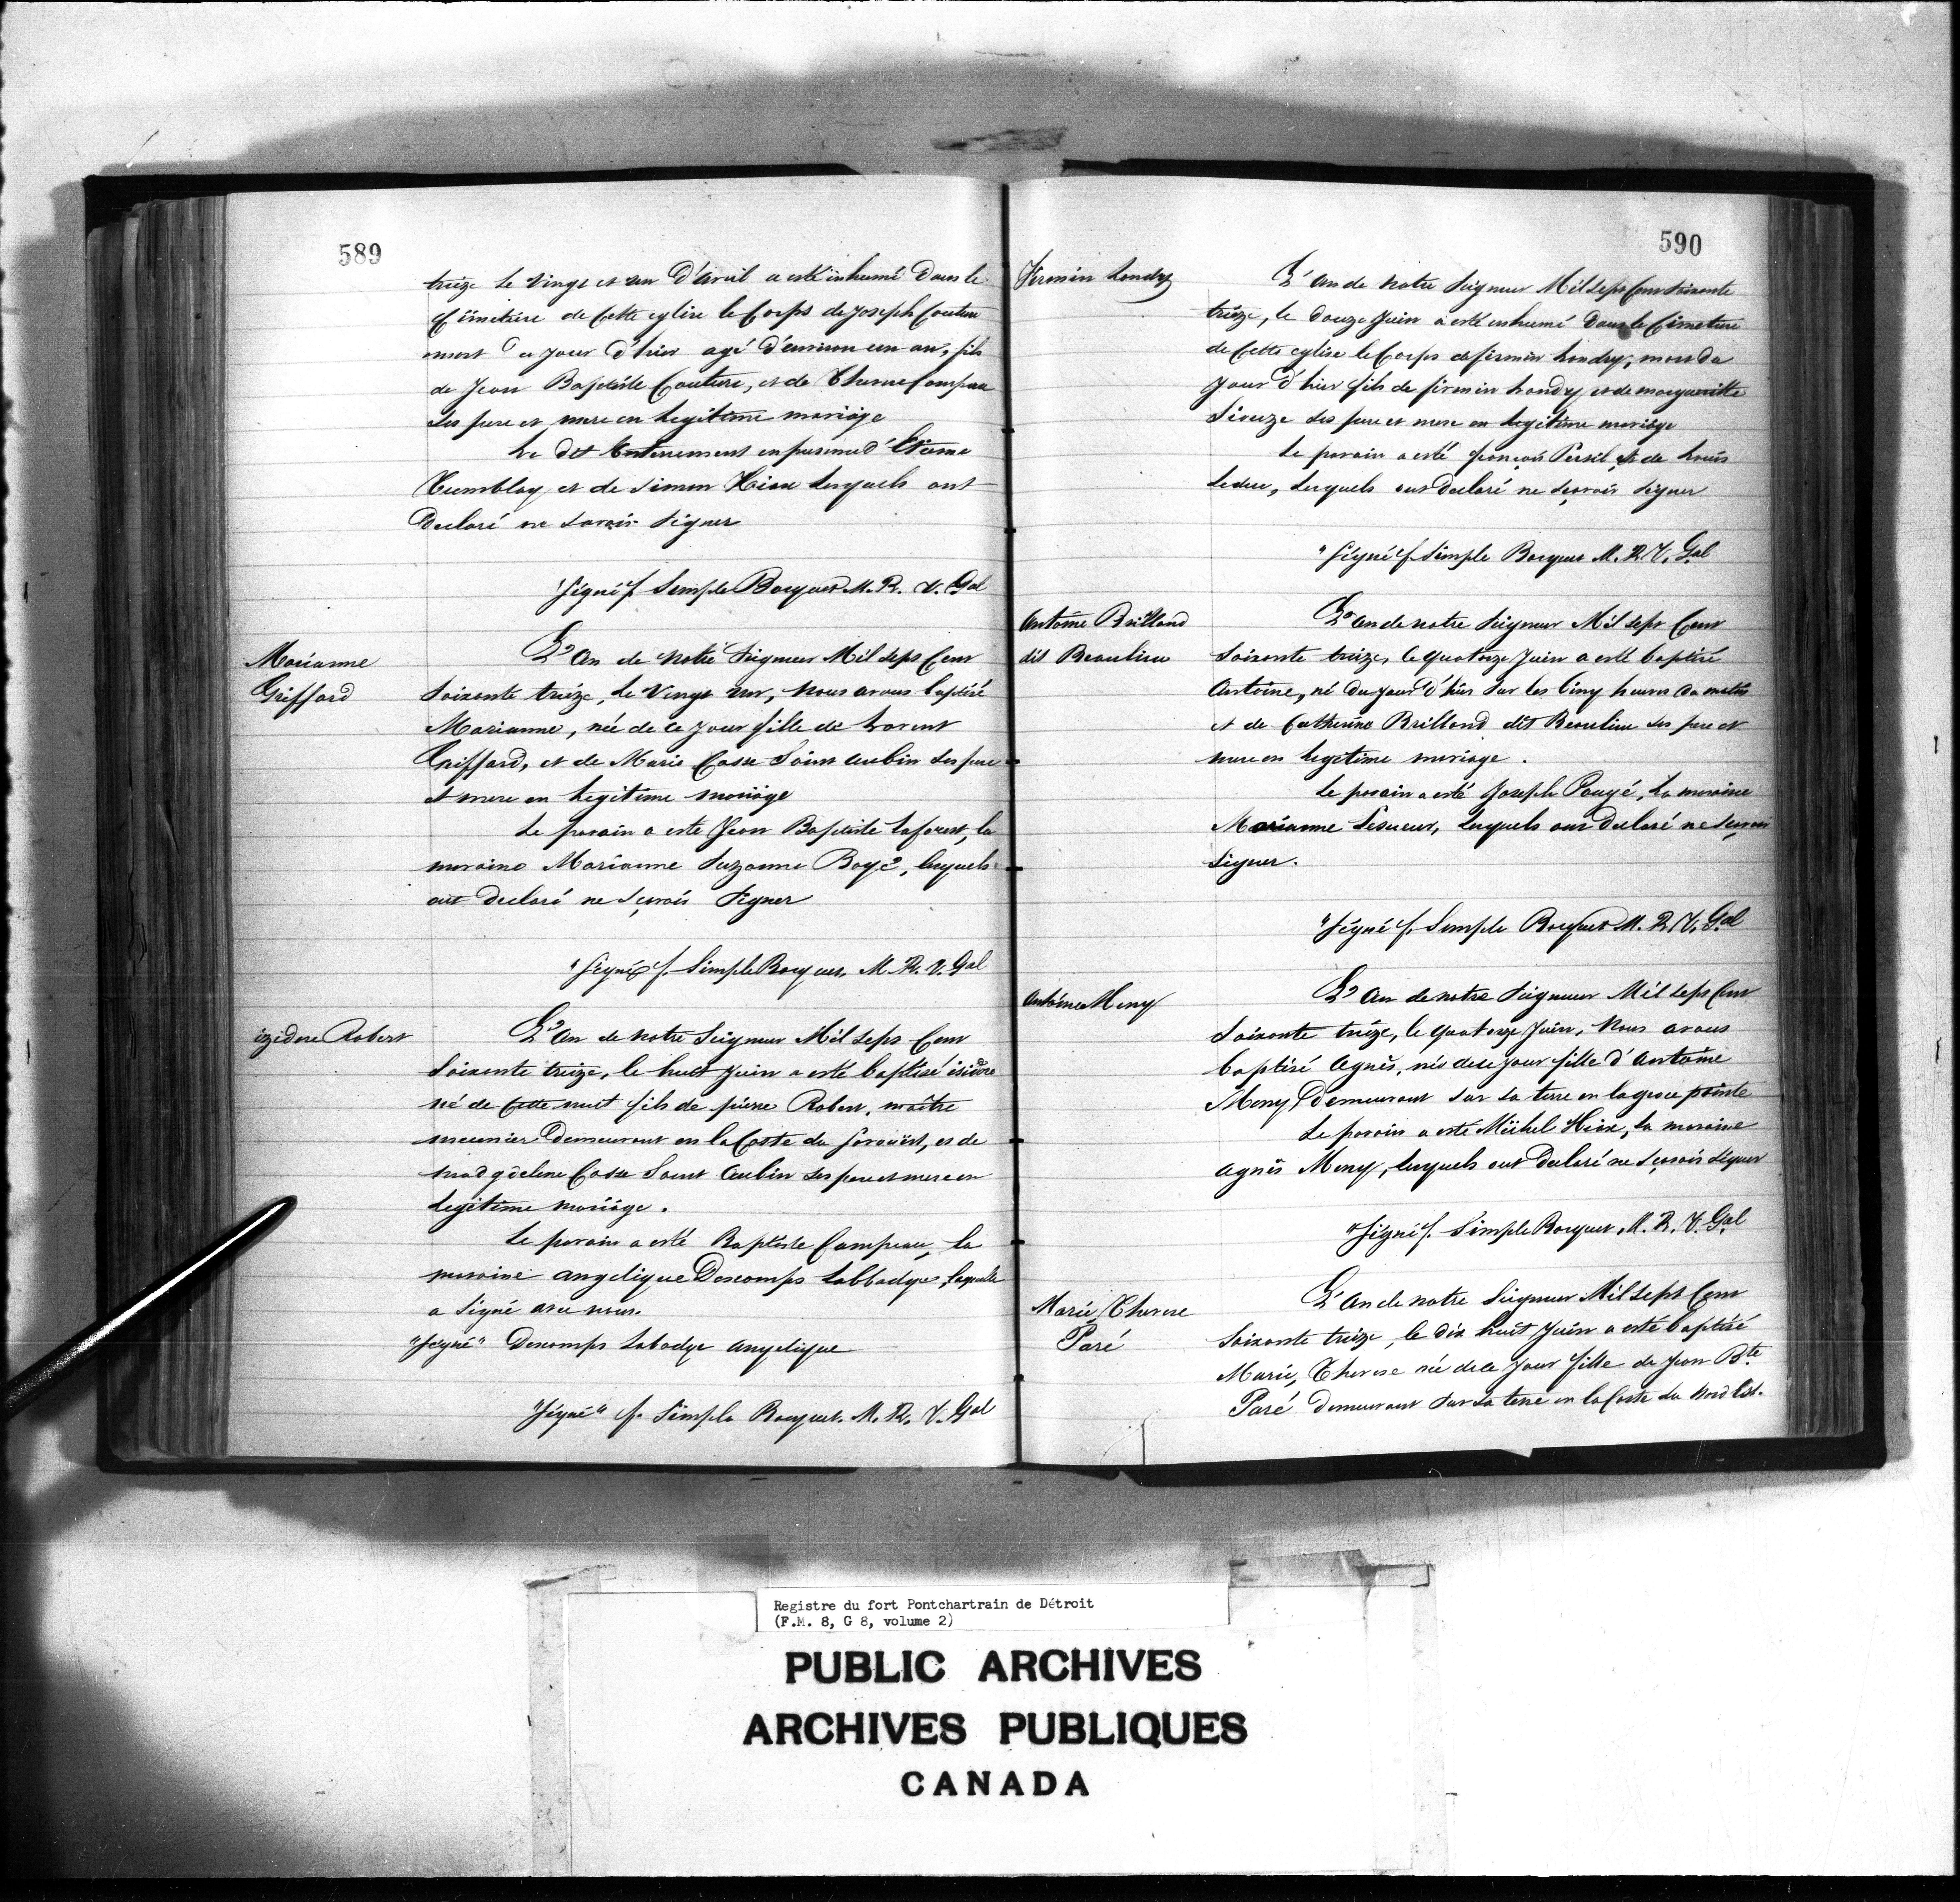 589
treize le vingt et un d'avril a esté inhumé dans le
Cimetiere de Cette eglise le Corps de Joseph Couture
mort du jour d'hier agé d'environ un an, fils
de Jean Baptiste Couture, et de Therese Campeau
ses pere et mere en legitime mariage
Le dit Enterrement en presence d'Etienne
Tremblay et de Simon Hion lesquels ont
Declaré ne savoir signer
"Signé f. Simple Bocquet M. R. V. Gal
Marianne
Griffard
L'An de notre Seigneur Mil sept Cent
soixante treize, le vingt un, nous avons baptisé
Marianne, née de ce jour fille de Lorent
Griffard, et de Marie Casse Saint Aubin ses pere
et mere en legitime mariage
Le parain a esté Jean Baptiste Laforest, la
maraine Marianne Suzanne Boyé, lesquels
ont declaré ne sçavoir signer
"Signé f. Simple Bocquet M. R. V. Gal
izidore Robert
L'An de notre Seigneur Mil sept Cent
soixante treize, le huit Juin a esté baptisé isidore
né de Cette nuit fils de pierre Robert, maître
meunier Demeurant en la Coste du , et de
madgdelene Casse Saint Aubin ses pere et mere en
legitime mariage.
Le parain a esté Baptiste Campeau, la
maraine angelique Descomps Labbadye, laquelle
a signé avec nous.
"Signé" Descomps Labadye angelique
"Signé" f. Simple Bocquet. M. R. V. Gal
590
Firmin Landry
L'An de notre Seigneur Mil sept Cent soixante
treize, le douze Juin a esté inhumé Dans le Cimetiere
de Cette eglise le Corps de firmin Landry, mort du
jour d'hier fils de firmin Landry et de margueritte
ses pere et mere en legitime mariage
Le parain a esté françois Persil et de Louis
Leduc, lesquels ont declaré ne sçavoir signer
"Signé f. Simple Bocquet M. R. V. Gal
Antoine Brilland
dit Beaulieu
L'An de notre Seigneur Mil sept Cent
soixante treize, le quatorze Juin a esté baptisé
Antoine, né du jour d'hier sur les Cinq heures du matin
et de Catherine Brilland dit Beaulieu ses pere et
mere en legitime mariage.
Le parain a esté Joseph Pouyé, la maraine
Marianne Lesueur, lesquels ont declaré ne sçavoir
signer.
"Signé f. Simple Bocquet M. R. V. Gal
Antoine Meny
L'An de notre Seigneur Mil sept Cent
soixante treize, le quatorze Juin, nous avons
baptisé Agnès, née de ce jour fille d'Antoine
Meny, Demeurant sur sa terre en la grosse pointe
Le parain a esté Michel Hion, la maraine
agnès Meny, lesquels ont declaré ne sçavoir signer
"Signé f. Simple Bocquet, M. R. V. Gal
Marie, Therese
Paré
L'An de notre Seigneur Mil sept Cent
soixante treize, le dix huit Juin a esté baptisé
Marie, Therese née de ce jour fille de Jean Bte
Paré demeurant sur sa terre en la Coste du Nord Est.
Registre du fort Pontchartrain de Détroit
(F.M. 8, G 8, volume 2)
PUBLIC ARCHIVES
ARCHIVES PUBLIQUES
CANADA